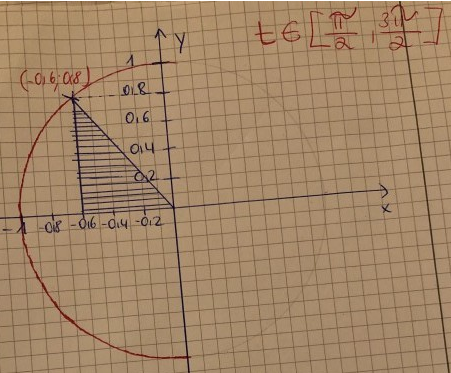 t ∈ [π/2, 3π/2]
y
1
(-0,6; 0,8)
0,8
0,6
0,4
0,2
-1 -0,8 -0,6 -0,4 -0,2
x